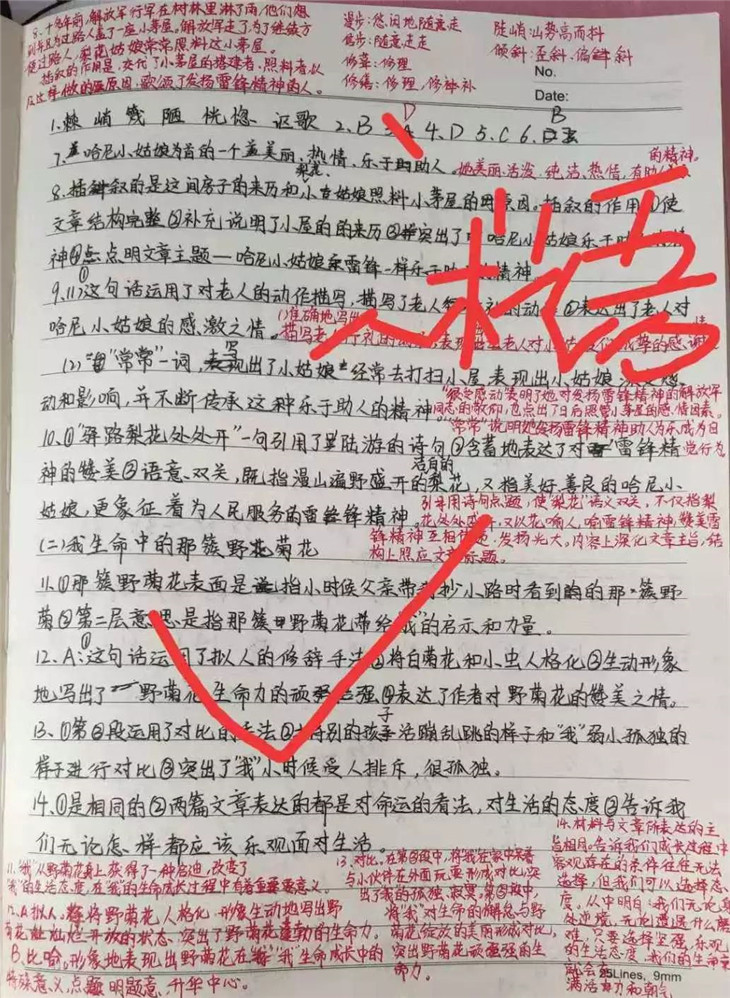 8.十多年前,解放军行军在树林里淋了雨,他们想
到并且为过路人盖了一座小茅屋。解放军走了,为了继续方
便过路人,梨花姑娘常常照料这小茅屋。
插叙的作用是:交代了小茅屋的搭建者、照料者以
及这样做的原因,歌颂了发扬雷锋精神的人。
漫步:悠闲地随意走
信步:随意走走
修葺:修理
修缮:修理,修补
陡峭:山势高而抖
倾斜:歪斜、偏斜
No.
Date:
1.棘 峭 篾 陋 恍惚 讴歌 2.B 3.A 4.D 5.C 6.
D
B
7.哈尼小姑娘为首的一个美丽、热情、乐于助人
她美丽活泼、纯洁、热情,有助人
的精神。
8.插叙的是这间房子的来历和小姑娘照料小茅屋的原因。插叙的作用①使
梨花
文章结构完整②补充说明了小屋的的来历③突出了哈尼小姑娘乐于
神④点明文章主题—哈尼小姑娘雷锋一样乐于助 精神
9.(1)①这句话运用了对老人的动作描写,描写了老人 的动 ②表达出了老人对
哈尼小姑娘的感激之情。
(1)准确地写出
(2)"常常"一词,突现出了小姑娘经常去打扫小屋表现出小姑娘
动和影响,并不断传承这种乐于助人的精神
"很受感动"表明了她对发扬雷锋精神的解放军
同志的敬仰,也点出了日后照管小茅屋的感情因素。
"常常"说明她发扬雷锋精神助人为乐成为日
觉行为
10.①"驿路梨花处处开"一句引用了陆游的诗句②含蓄地表达了对"雷锋精
神的赞美③语意双关,既指漫山遍野盛开的梨花,又指美好、善良的哈尼小
洁白的
姑娘,更象征着为人民服务的雷锋精神。
引用诗句点题,使"梨花"语义双关,不仅指梨
花处处开,又以花喻人,喻雷锋精神,赞美雷
锋精神互相传递、发扬光大。内容上深化文章主旨,结
构上照应文章标题。
(二)我生命中的那簇野花菊花
11.①那簇野菊花表面是指小时候父亲带我抄小路时看到的那一簇野
菊②第二层意思是指那簇野菊花带给"我"的启示和力量。
12.A:①这句话运用了拟人的修辞手法②将白菊花和小虫人格化③生动形象
地写出了野菊花生命力的顽强④表达了作者对野菊花的赞美之情。
13.①第⑤段运用了对比的手法②特别的孩子活蹦乱跳的样子和"我"弱小孤独的
样子进行对比③突出了"我"小时候受人排斥,很孤独。
14.①是相同的②两篇文章表达的都是对命运的看法,对生活的态度③告诉我
们无论怎样都应该乐观面对生活。
11."我"从野菊花身上获得了一种启迪,改变了
"我"的生活态度,在"我"的生命成长过程中有着重要意义。
12.A拟人。将野菊花人格化,形像生动地写出野
菊花灿烂开放的状态,突出了野菊花蓬勃的生命力。
B.比喻。形象地表现出野菊花在"我"生命成长中的
特殊意义,点明题意,升华中心。
13.对比,在第⑤段中,将"我"在家中呆着
与小伙伴在外面玩耍形成对比,突
出了我的孤独、寂寞;第 段中,
将"我"对生命的懈怠与野
菊花绽放的美丽形成对比,
突出野菊花顽强的生
命力。
14.材料与文章所表达的主
旨相同。告诉我们成长过程中
客观存在的条件往往无法
选择,但我们可以选择态
度。从中明白:我们无论身
处逆境,无论遭遇什么磨
难,只要选择坚强、乐观
的生活态度,我们的生命
就会
满活力和朝气
25Lines, 9mm